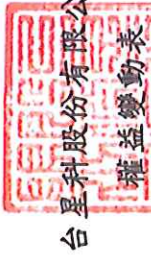 台星科股份有限公
權益變動表